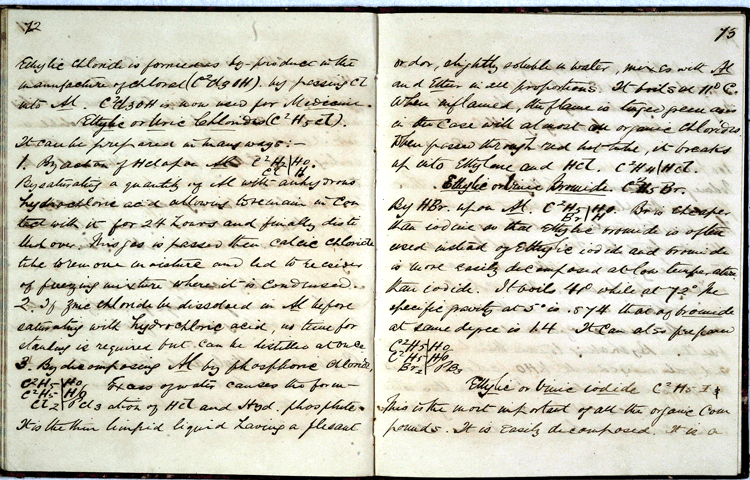 72
Ethylic Chloride is formed as by-product in the
manufacture of chloral (C2Cl3OH) by passing Cl
into Al. C2Cl3OH is now used for Medicine.
Ethylic or Vinic Chloride (C2H5Cl).
It can be prepared in many ways:-
1. By action of HCl upon Al. C2H5|HO.
Cl|H
By saturating a quantity of Al with anhydrous
hydrochloric acid allowing to remain in Con
tact with it for 24 hours and finally disti
lled over. This gas is passed then calcic chloride
tube to remove moisture and led to receiver
of freezing mixture where it is condensed.
2. If Zinc chloride be dissolved in Al before
saturating with hydrochloric acid, no time for
standing is required but can be distilled at once
3. By decomposing Al by phosphoric chloride,
C2H5|HO Excess of water causes the form-
C2H5|HO
Cl2|PCl3 ation of HCl and Hyd. phosphate.
It is the thin limpid liquid having a plesant
73
ordor, slightly soluble in water, mixes with Al
and Ether in all proportions. It boils at 11° C.
When inflamed, the flame is tinged green as
in the case with almost an organic chlorides.
When passed through red hot tube, it breaks
up into Ethylene and HCl. C2H4|HCl.
Ethylic or Vinic Bromide C2H5Br.
By HBr upon Al. C2H5|HO. Br is cheaper
Br|H
than iodine so that Ethylic bromide is often
used instead of Ethylic iodide and bromide
is more easily decomposed at low temperature
than iodide. It boils 40° while at 72° the
specific gravity at 5° is that of bromide
at same degree is 1.4. It can also prepare
C2H5|HO
C2H5|HO
Br2|PBr3
Ethylic or Vinic iodide C2H5I
This is the most important of all the organic Com
pounds. It is easily decomposed. It is a